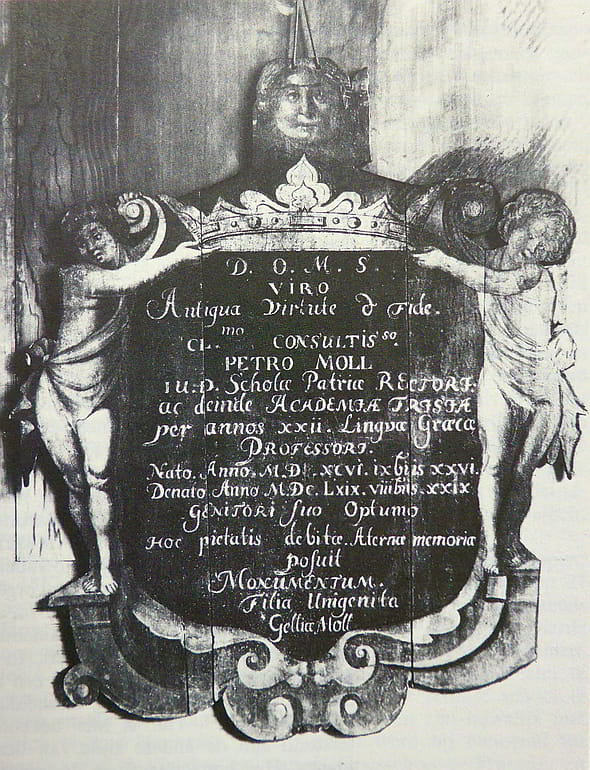 D. O. M. S.
VIRO
Antiqua Virtute & Fide.
CL.mo CONSULTISso.
PETRO MOLL
IU.D. Scholæ Patriæ RECTORI.
ac deinde ACADEMIÆ FRISIÆ
per annos XXII. Linguæ Græcæ
PROFESSORI.
Nato. Anno. M.D. XCVI. IXbris XXVI.
Denato Anno M.Dc. Lxix. viiibris. XXIX
GENITORI suo Optumo
Hoc pietatis debitæ. Aternæ memoriæ
posuit
MONUMENTUM.
Filia Unigenita
Gelliæ Moll